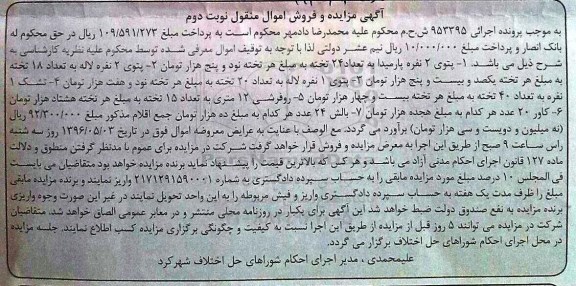 آگهی مزایده و فروش اموال منقول نوبت دوم
به موجب پرونده اجرائی ۹۵۳۳۹۵ ش.ح.م محکوم علیه محمدرضا دادمهر محکوم است به پرداخت مبلغ ۱۰۹/۵۹۱/۲۷۳ ریال در حق محکوم له
بانک انصار و پرداخت مبلغ ۱۰/۰۰۰/۰۰۰ ریال نیم عشر دولتی لذا با توجه به توقیف اموال معرفی شده توسط محکوم علیه نظریه کارشناسی به
شرح ذیل می باشد. ۱- پتوی ۲ نفره پارمیدا به تعداد ۲۴ تخته به مبلغ هر تخته نود و پنج هزار تومان ۲- پتوی ۲ نفره لاله به تعداد ۱۸ تخته
به مبلغ هر تخته یکصد و بیست و پنج هزار تومان ۳- پتوی ۱ نفره لاله به تعداد ۳۰ تخته به مبلغ هر تخته نود و هفت هزار تومان ۴- تشک ۱
نفره به تعداد ۴۰ تخته به مبلغ هر تخته بیست و چهار هزار تومان ۵- روفرشی ۱۲ متری به تعداد ۱۵ تخته به مبلغ هر تخته هشتاد هزار تومان
۶- کاور ۲۰ عدد هر کدام به مبلغ هجده هزار تومان ۷- بالش ۲۴ عدد هر کدام به مبلغ ده هزار تومان جمع اقلام مذکور مبلغ ۹۲/۳۰۰/۰۰۰ ریال
(نه میلیون و دویست و سی هزار تومان) برآورد می گردد. مع الوصف با عنایت به عرایض معروضه اموال فوق در تاریخ ۱۳۹۶/۰۵/۰۳ روز سه شنبه
راس ساعت ۹ صبح از طریق این اجرا به معرض مزایده و فروش قرار خواهد گرفت شرکت در مزایده برای عموم با مدنظر گرفتن منطوق و دلالت
ماده ۱۲۷ قانون اجرای احکام مدنی آزاد می باشد و هر کس که بالاترین قیمت را پیشنهاد نماید برنده مزایده خواهد بود متقاضیان می بایست
فی المجلس ۱۰ درصد مبلغ مورد مزایده مابقی را به حساب سپرده دادگستری به شماره ۲۱۷۱۲۹۱۵۹۰۰۰۱ واریز نمایند و برنده مزایده مابقی
مبلغ را ظرف مدت یک هفته به حساب سپرده دادگستری واریز و فیش مربوطه را به این واحد تحویل نمایند در غیر این صورت وجوه واریزی
برنده مزایده به نفع صندوق دولت ضبط خواهد شد این آگهی برای یکبار در روزنامه محلی منتشر و در معابر عمومی الصاق خواهد شد. متقاضیان
شرکت در مزایده می توانند ۵ روز قبل از مزایده از طریق این اجرا نسبت به کیفیت و چگونگی برگزاری مزایده کسب اطلاع نمایند. جلسه مزایده
در محل اجرای احکام شوراهای حل اختلاف برگزار می گردد.
علیمحمدی ، مدیر اجرای احکام شوراهای حل اختلاف شهرکرد